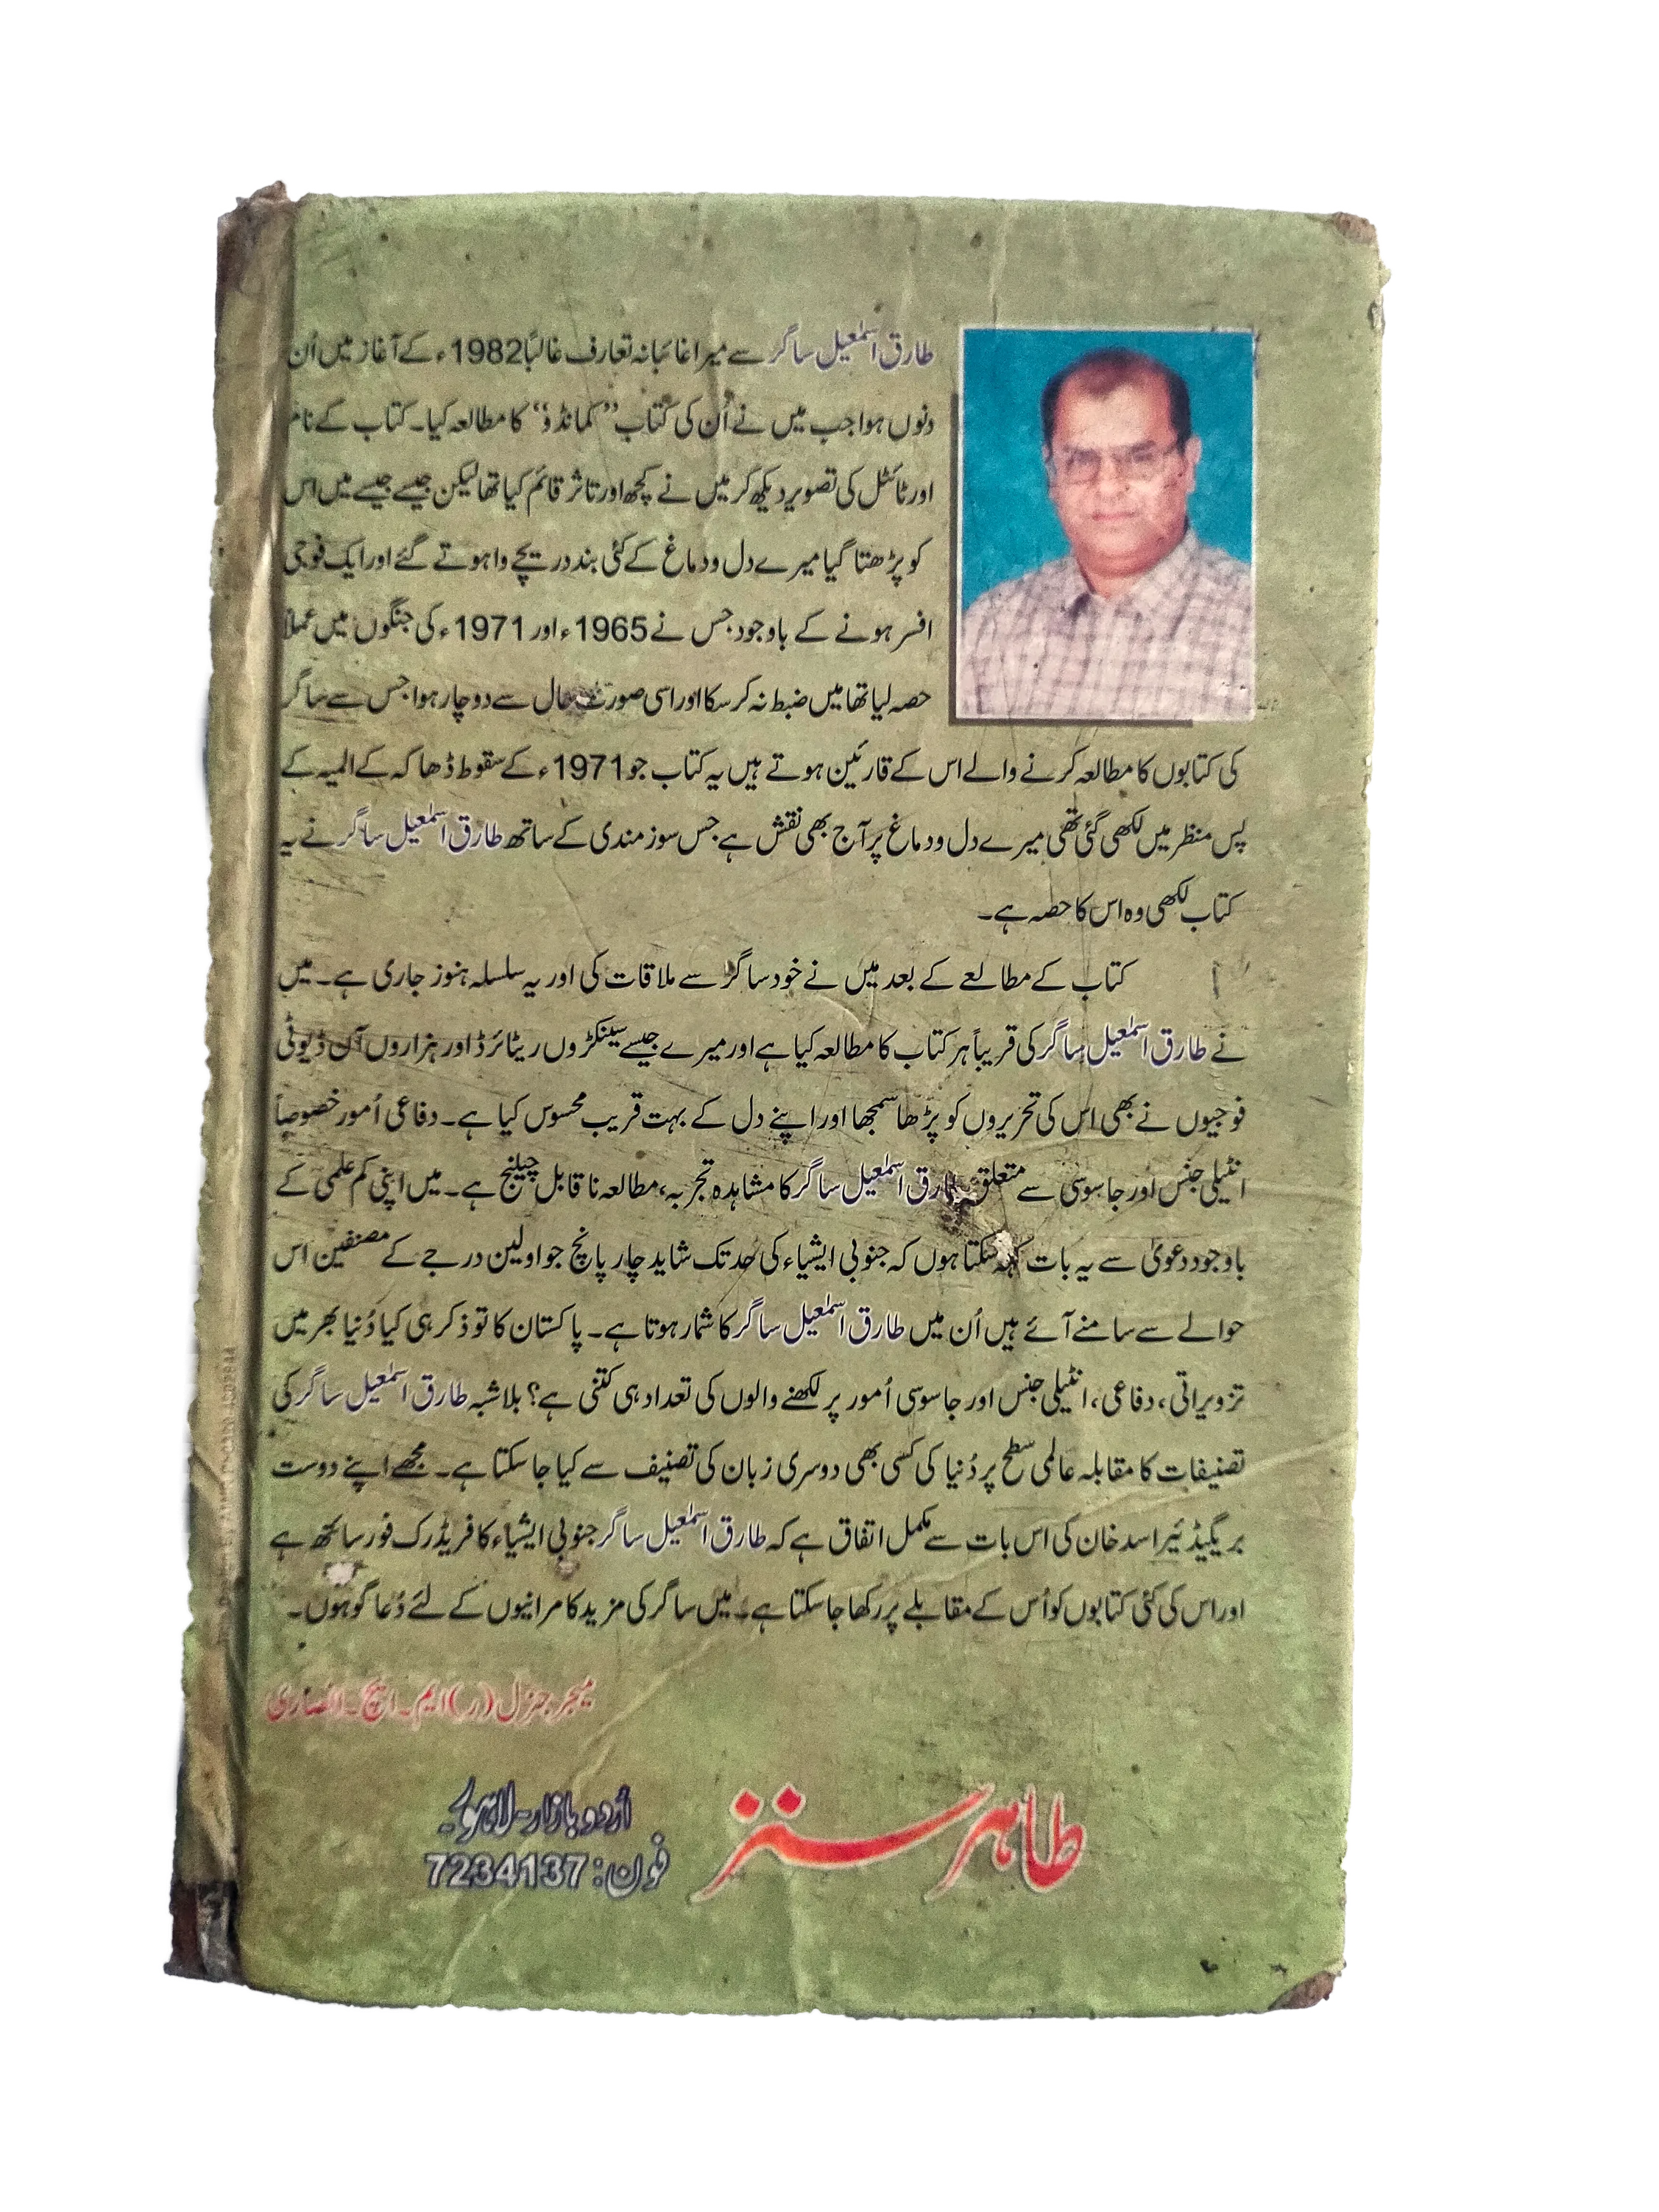 طارق اسمٰعیل ساگر سے میرا غائبانہ تعارف غالبًا 1982ء کے آغاز میں اُن
دنوں ہوا جب میں نے اُن کی کتاب ”کمانڈو“ کا مطالعہ کیا۔ کتاب کے نام
اور ٹائٹل کی تصویر دیکھ کر میں نے کچھ اور تاثر قائم کیا تھا لیکن جیسے جیسے میں اس
کو پڑھتا گیا میرے دل و دماغ کے کئی بند دریچے وا ہوتے گئے اور ایک فوجی
افسر ہونے کے باوجود جس نے 1965ء اور 1971ء کی جنگوں میں عملاً
حصہ لیا تھا میں ضبط نہ کر سکا اور اسی صورت حال سے دوچار ہوا جس سے ساگر
کی کتابوں کا مطالعہ کرنے والے اس کے قارئین ہوتے ہیں یہ کتاب جو 1971ء کے سقوط ڈھاکہ کے المیہ کے
پس منظر میں لکھی گئی تھی میرے دل و دماغ پر آج بھی نقش ہے جس سوز مندی کے ساتھ طارق اسمٰعیل ساگر نے یہ
کتاب لکھی وہ اس کا حصہ ہے۔
کتاب کے مطالعے کے بعد میں نے خود ساگر سے ملاقات کی اور یہ سلسلہ ہنوز جاری ہے۔ میں
نے طارق اسمٰعیل ساگر کی قریباً ہر کتاب کا مطالعہ کیا ہے اور میرے جیسے سینکڑوں ریٹائرڈ اور ہزاروں آن ڈیوٹی
فوجیوں نے بھی اس کی تحریروں کو پڑھا سمجھا اور اپنے دل کے بہت قریب محسوس کیا ہے۔ دفاعی اُمور خصوصاً
انٹیلی جنس اور جاسوسی سے متعلق طارق اسمٰعیل ساگر کا مشاہدہ تجربہ، مطالعہ ناقابل چیلنج ہے۔ میں اپنی کم علمی کے
باوجود دعویٰ سے یہ بات کہہ سکتا ہوں کہ جنوبی ایشیاء کی حد تک شاید چار پانچ جو اولین درجے کے مصنفین اس
حوالے سے سامنے آئے ہیں اُن میں طارق اسمٰعیل ساگر کا شمار ہوتا ہے۔ پاکستان کا تو ذکر ہی کیا دُنیا بھر میں
تزویراتی، دفاعی، انٹیلی جنس اور جاسوسی اُمور پر لکھنے والوں کی تعداد ہی کتنی ہے؟ بلاشبہ طارق اسمٰعیل ساگر کی
تصنیفات کا مقابلہ عالمی سطح پر دُنیا کی کسی بھی دوسری زبان کی تصنیف سے کیا جا سکتا ہے۔ مجھے اپنے دوست
بریگیڈئیر اسد خان کی اس بات سے مکمل اتفاق ہے کہ طارق اسمٰعیل ساگر جنوبی ایشیاء کا فریڈرک فورسائتھ ہے
اور اس کی کئی کتابوں کو اُس کے مقابلے پر رکھا جا سکتا ہے۔ میں ساگر کی مزید کامرانیوں کے لئے دُعا گو ہوں۔
میجر جنرل (ر) ایم۔ ایچ۔ انصاری
طاہر سنز
اُردو بازار۔ لاہور۔
فون: 7234137